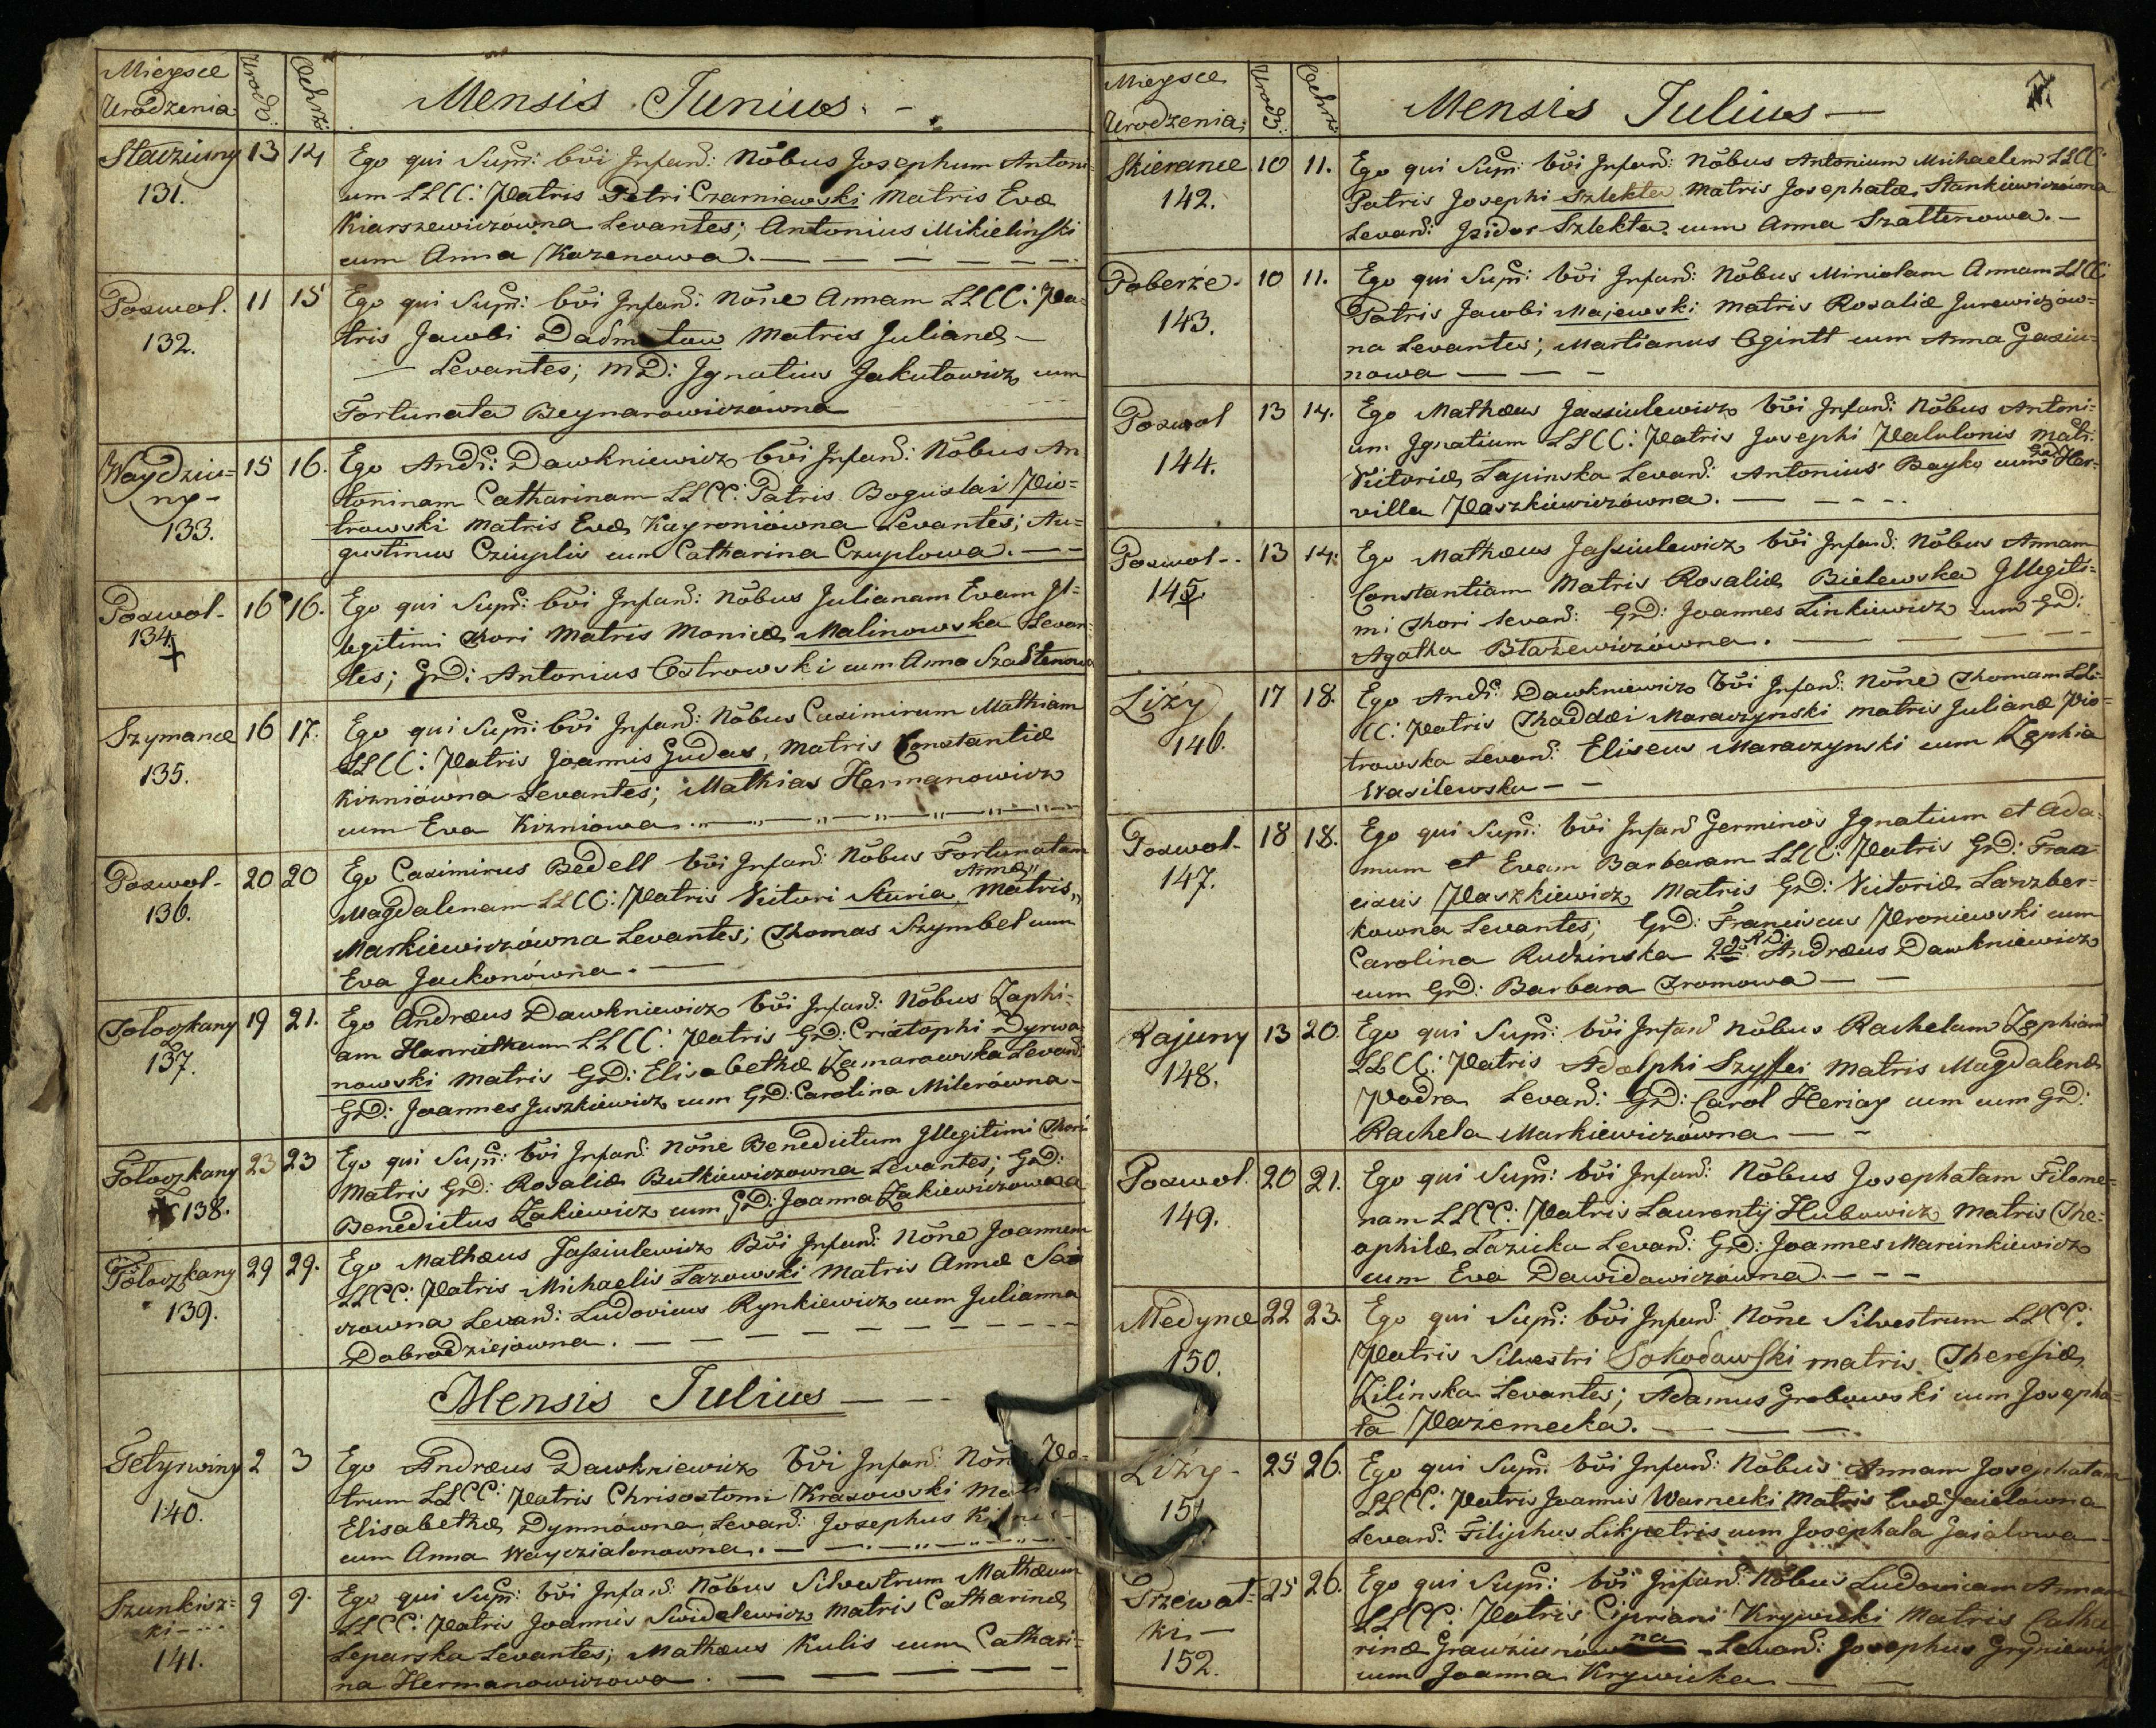 Mieysce Urodz: Ochrz:
Urodzenia
Mensis Junius. -
Staziuny 13 14 Ego qui Supr: bṽi Infand: Nõbus Josephum Antoni=
131. um LLCC: Patris Petri Czarniewski Matris Evæ
Kiarszewiczówna Levantes; Antonius Mikieliński
cum Anna Kozenowa. — — — — —
Poswol. 11 15 Ego qui Supr: bṽi Infand: Nõne Annam LLCC: Pa=
132. tris Jacobi Matris Julianæ —
— Levantes; MD: Ignatius Jakutowicz cum
Fortunata Beynarowiczówna
Waydziu= 15 16. Ego Andr: Dawkniewicz bṽi Infand: Nõbus An
ny - toninam Catharinam LLCC: Patris Boguslai Pio=
133. trowski Matris Evæ Kayroniówna Levantes; Au=
gustinus Cziuplis cum Catharina Czuplowa. — —
Poswol- 16 16. Ego qui Supr: bṽi Infand: Nõbus Julianam Evam Il=
134. legitimi Thori Matris Monicæ Malinowska Levan=
tes; GD: Antonius Ostrowski cum Anna Szaltenowa
Szymance 16 17. Ego qui Supr: bṽi Infand: Nõbus Casimirum Mathiam
135. LLCC: Patris Joannis Gudas, Matris Constantiæ
Kizniówna Levantes; Mathias Hermanowicz
cum Eva Kizniowa. — „ — „ — „ —
Poswol- 20 20 Ego Casimirus Bedell bṽi Infand: Nõbus Fortunatam
136. Magdalenam LLCC: Patris Victori Sturia, Matris „ Annæ „
Markiewiczówna Levantes; Thomas Szymbel cum
Eva Jackonówna. —
Toloczkany 19 21. Ego Andræus Dawkniewicz bṽi Infand: Nõbus Zophi=
137. am Henriettam LLCC: Patris GD: Cristophi Dyrwa=
nowski Matris GD: Elisabethæ Zamarawska Levand:
GD: Joannes Juszkiewicz cum GD: Carolina Milerówna-
Toloczkany 23 23 Ego qui Supr: bṽi Infand: Nõne Benedictum Illegitimi Thori
138. Matris GD: Rosaliæ Butkiewiczowna Levantes; GD:
Benedictus Zakiewicz cum GD: Joanna Zakiewiczowna
Toloczkany 29 29. Ego Mathæus Jassiulewicz Bṽi Infand: Nõne Joannem
139. LLCC: Patris Michaelis Lazowski Matris Annæ Sa
zowna Levand: Ludovicus Rynkiewicz cum Julianna
Dobrodziejowna. — — — — —
Mensis Julius — — -
Tetyrwiny 2 3 Ego Andræus Dawkniewicz bṽi Infand: Nõn Pe=
140. trum LLCC: Patris Chrisostomi Krasowski Mat
Elisabethæ Dymnówna Levand: Josephus
cum Anna Wayczialonowna. — — „ —
Szunkisz= 9 9. Ego qui Supr: bṽi Infand: Nõbus Silvestrum Mathæum
ki - - - LLCC: Patris Joannis Swidelewicz Matris Catharinæ
141. Leparska Levantes; Mathæus Kulis cum Cathari=
na Hermanowiczowa. — — — — -
Mieysce Urodz: Ochrz:
Urodzenia;
Mensis Julius — 7.
Skierance 10 11. Ego qui Supr: bṽi Infand: Nõbus Antonium Michaelem LLCC:
142. Patris Josephi Szlekta Matris Josephatæ Stankiewiczówna
Levand: Isidor Szlekta cum Anna Szaltenowa. —
Poberże. 10 11. Ego qui Supr: bṽi Infand: Nõbus Annam LLCC
143. Patris Jacobi Majewski Matris Rosaliæ Jurewiczów=
na Levantes; Martianus Ogintt cum Anna Gasiu=
nowa — — -
Poswol 13 14. Ego Mathæus Jassiulewicz bṽi Infand: Nõbus Antoni=
144. um Ignatium LLCC: Patris Josephi Palulonis Matr:
Victoriæ Lapinska Levand: Antonius Bayko cum GD: Her=
villa Paszkiewiczówna. — — — -
Poswol-- 13 14. Ego Mathæus Jassiulewicz bṽi Infand: Nõbus Annam
145. Constantiam Matris Rosaliæ Bielewska Illegiti=
mi Thori Levand: GD: Joannes Linkiewicz cum GD:
Agatha Błażewiczówna. — — — — —
Liży 17 18. Ego Andr: Dawkniewicz bṽi Infand: Nõne Thomam LL=
146. CC: Patris Thaddæi Maraczynski Matris Julianæ Pio=
trowska Levand: Eliseus Maraczynski cum Zophia
Wasilewska — —
Poswol- 18 18. Ego qui Supr: bṽi Infand Germinos Ignatium et Ada=
147. mum et Evam Barbaram LLCC: Patris GD: Fran=
cisci Paszkiewicz Matris GD: Victoriæ Larzber=
kowna Levantes; GD: Franciscus Proniewski cum
Carolina Rudzinska 2do RD: Andræus Dawkniewicz
cum GD: Barbara Tromowa —
Rajuny 13 20. Ego qui Supr: bṽi Infand Nõbus Rachelam Zophiam
148. LLCC: Patris Adolphi Szyffei Matris Magdalenæ
Podra Levand: GD: Carol Heriay cum cum GD:
Rachela Markiewiczówna — -
Poswol. 20 21. Ego qui Supr: bṽi Infand: Nõbus Josephatam Filome=
149. nam LLCC: Patris Laurentij Hubowicz Matris The=
ophilæ Lazicka Levand: GD: Joannes Marcinkiewicz
cum Eva Dawidowiczówna. — — -
Medynce 22 23. Ego qui Supr: bṽi Infand: Nõne Silvestrum LLCC:
150. Patris Silvestri Sokodawski matris Theresiæ
Zilinska Levantes; Adamus Grabowski cum Josepha=
ta Pażemecka. — — —
Liży- 25 26. Ego qui Supr: bṽi Infand: Nõbus Annam Josephatam
151 LLCC: Patris Joannis Warnecki Matris Evæ Gaielówna
Levand: Filiphus Likpetris cum Josephata Gaialowa -
Przewal= 25 26. Ego qui Supr: bṽi Infand: Nõbus Ludovicam Annam
ki — LLCC: Patris Cipriani Krywicki Matris Catha
152. rinæ Grauziunówna Levand: Josephus Gryniewicz
cum Joanna Krywicka — —